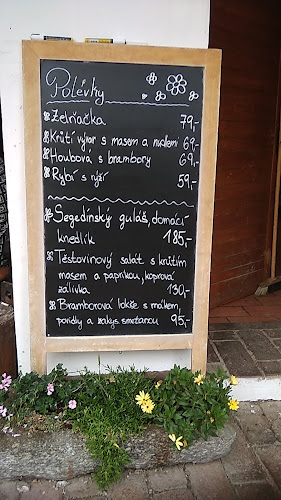 Polévky
Zelňačka 79,-
Krůtí vývar s masem a nudlemi 69,-
Houbová s brambory 69,-
Rybí s rýží 59,-
Segedínský guláš, domácí
knedlík 185,-
Těstovinový salát s krůtím
masem a paprikou, koprová
zálivka 130,-
Bramborové lokše s mákem,
povidly a zakys. smetanou 95,-